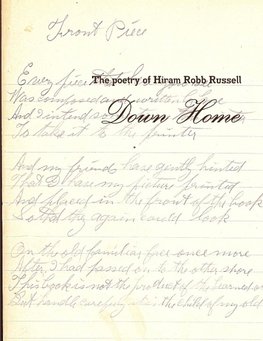 Front Piece
Every piece
The poetry of Hiram Robb Russell
Was composed and written
Down Home
And I intend
To take it to the printer
And my friends have gently hinted
That I have my picture printed
And placed in the front of the book
So that they again could look
On the old familiar face once more
After I had passed on to the other shore
This book is not the product of the learned
But handle carefully it is the child of my old